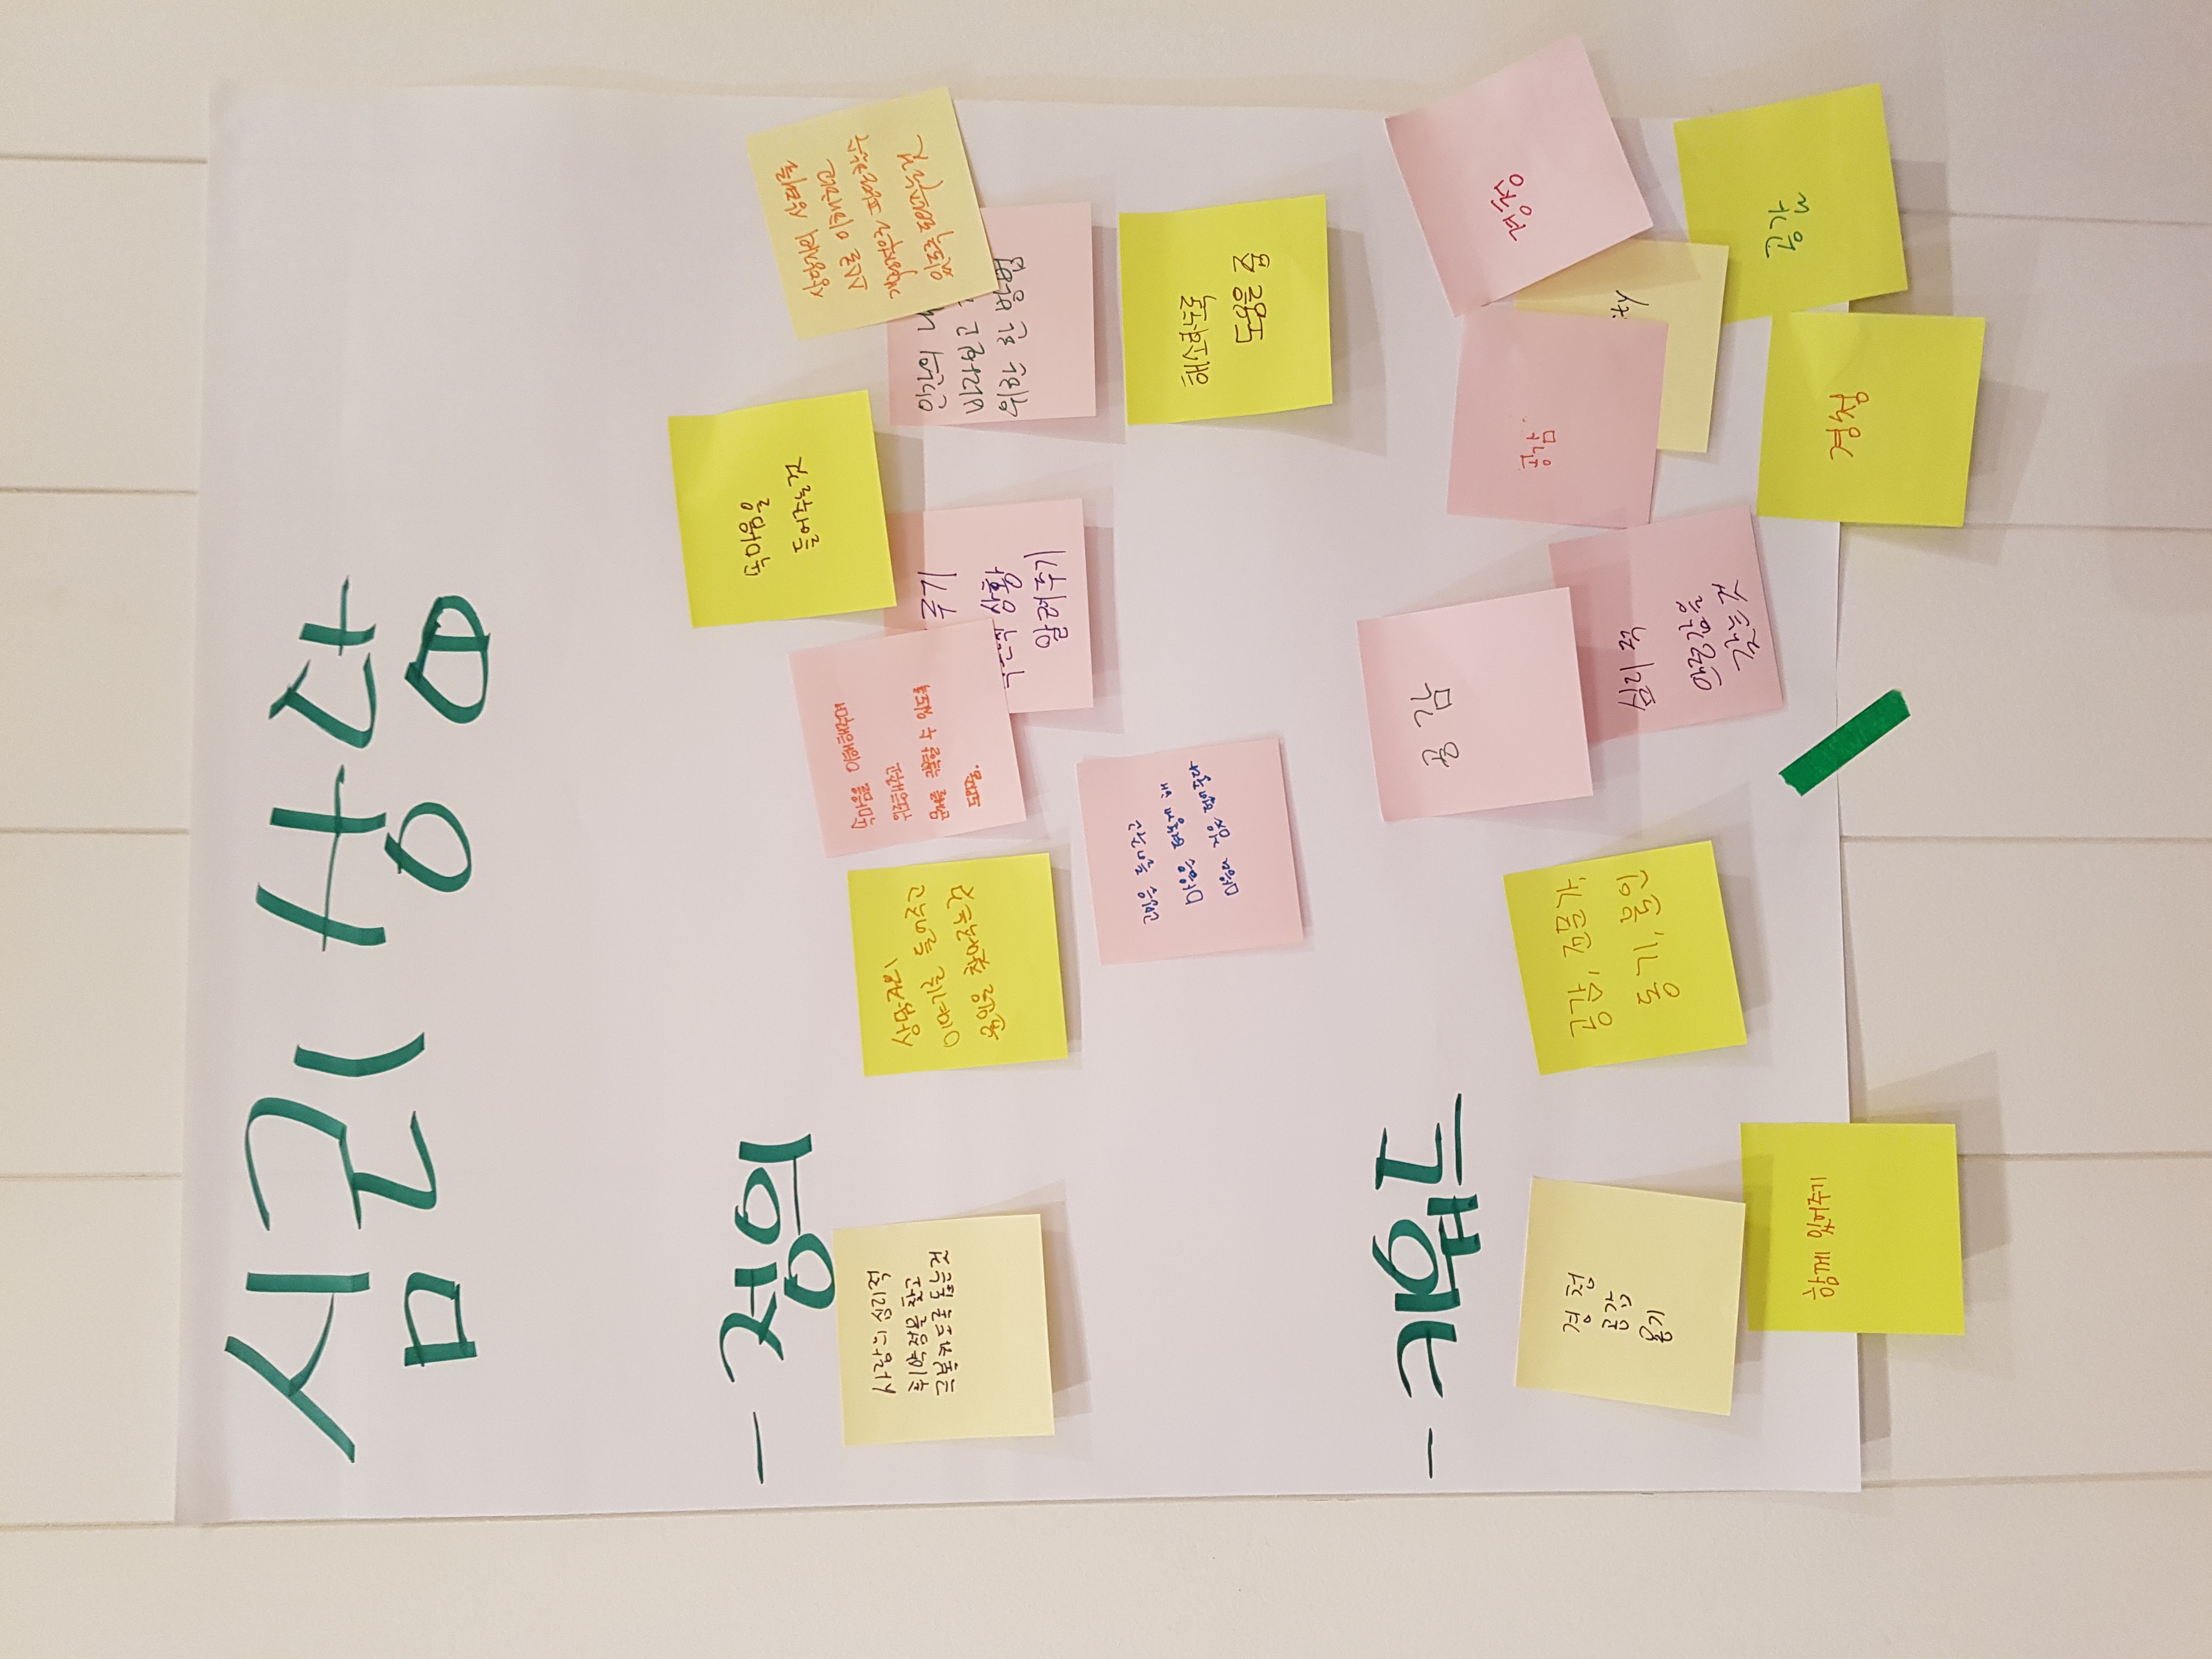 심리 상담
- 정의
사람의 심리적
취약점을 찾고
극복하도록 돕는것
상담자의
이야기를 들어주고
원인을 찾아주는것
속마음을 이해해주며
위로해주고
문제를 극복할 수 있도록
도와줌.
속마음을
들어주는것
루기
상황
알려주기
인간의
바라보고
위한 한 방법
상담자의 상태를
스스로 이해하고
객관적으로 판단할수
있도록 도와주는것
고민을 들어주고
마음을 터놓게 해
마음의 짐을 덜어준다
해소하도록
도움을 줌
- 키워드
경청
공감
용기
공감, 전문가,
동기, 원인
공감
심리적
안정감을
갖는것
공감
경청
ity
함께 있어주기
경청
공감